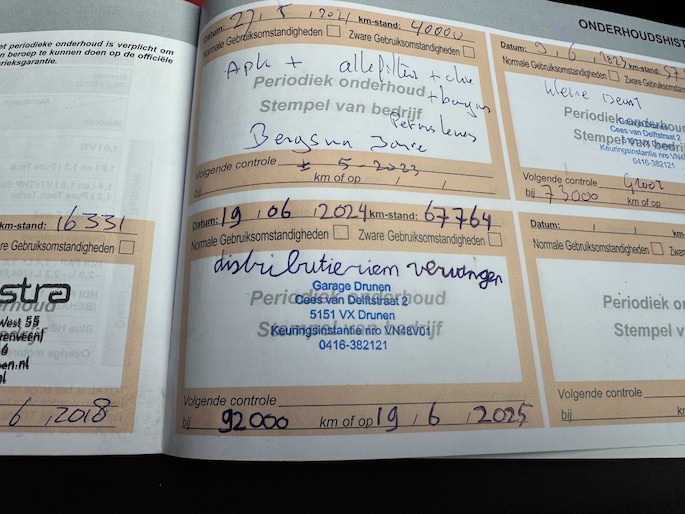 ONDERHOUDSHIST
et periodieke onderhoud is verplicht om
en beroep te kunnen doen op de officiële
rieksgarantie.
km-stand: 16 331
re Gebruiksomstandigheden
stra
West 55
6, 2018
Datum: 27, 5, 2021 km-stand: 40000
Normale Gebruiksomstandigheden Zware Gebruiksomstandigheden
Apk + alle filters + olie
+ bougies
Periodiek onderhoud
Stempel van bedrijf
Bergsma
Volgende controle 5-2023
bij km of op
Datum: 19, 06, 2024 km-stand: 67764
Normale Gebruiksomstandigheden Zware Gebruiksomstandigheden
distributieriem vervangen
Garage Drunen
Periodiek onderhoud
Cees van Delftstraat 2
5151 VX Drunen
Stempel van bedrijf
Keuringsinstantie nro VN48V01
0416-382121
Volgende controle
bij 92000 km of op 19, 6, 2025
Datum: 6, 2023 km-stand:
Normale Gebruiksomstandigheden Zware Gebruiksomst
kleine beurt
Periodiek onderhoud
Garage Drunen
Cees van Delftstraat 2
Stempel van bedrijf
5151 VX Drunen
Keuringsinstantie nro VN48
0416-382121
Volgende controle Groot
bij 73000 km of op
Datum: km-stand:
Normale Gebruiksomstandigheden Zwar
Periodiek o
Stempel v
Volgende controle
bij km of op